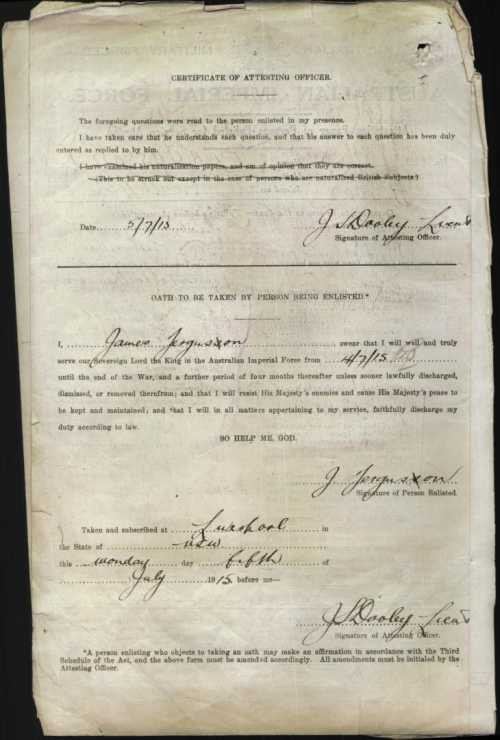 CERTIFICATE OF ATTESTING OFFICER.
The foregoing questions were read to the person enlisted in my presence.
I have taken care that he understands each question, and that his answer to each question has been duly
entered as replied to by him.
I have examined his naturalization papers, and am of opinion that they are correct.
(This to be struck out except in the case of persons who are naturalized British Subjects.)
Date 5/7/15 J S Dooley Lieut
Signature of Attesting Officer.
OATH TO BE TAKEN BY PERSON BEING ENLISTED.*
I, James Fergusson swear that I will well and truly
serve our Sovereign Lord the King in the Australian Imperial Force from 4/7/15
until the end of the War, and a further period of four months thereafter unless sooner lawfully discharged,
dismissed, or removed therefrom; and that I will resist His Majesty's enemies and cause His Majesty's peace to
be kept and maintained; and that I will in all matters appertaining to my service, faithfully discharge my
duty according to law.
SO HELP ME, GOD.
J Fergusson
Signature of Person Enlisted.
Taken and subscribed at Liverpool in
the State of NSW
this monday day fifth of
July 1915 before me—
J S Dooley Lieut
Signature of Attesting Officer.
*A person enlisting who objects to taking an oath may make an affirmation in accordance with the Third
Schedule of the Act, and the above form must be amended accordingly. All amendments must be initialed by the
Attesting Officer.